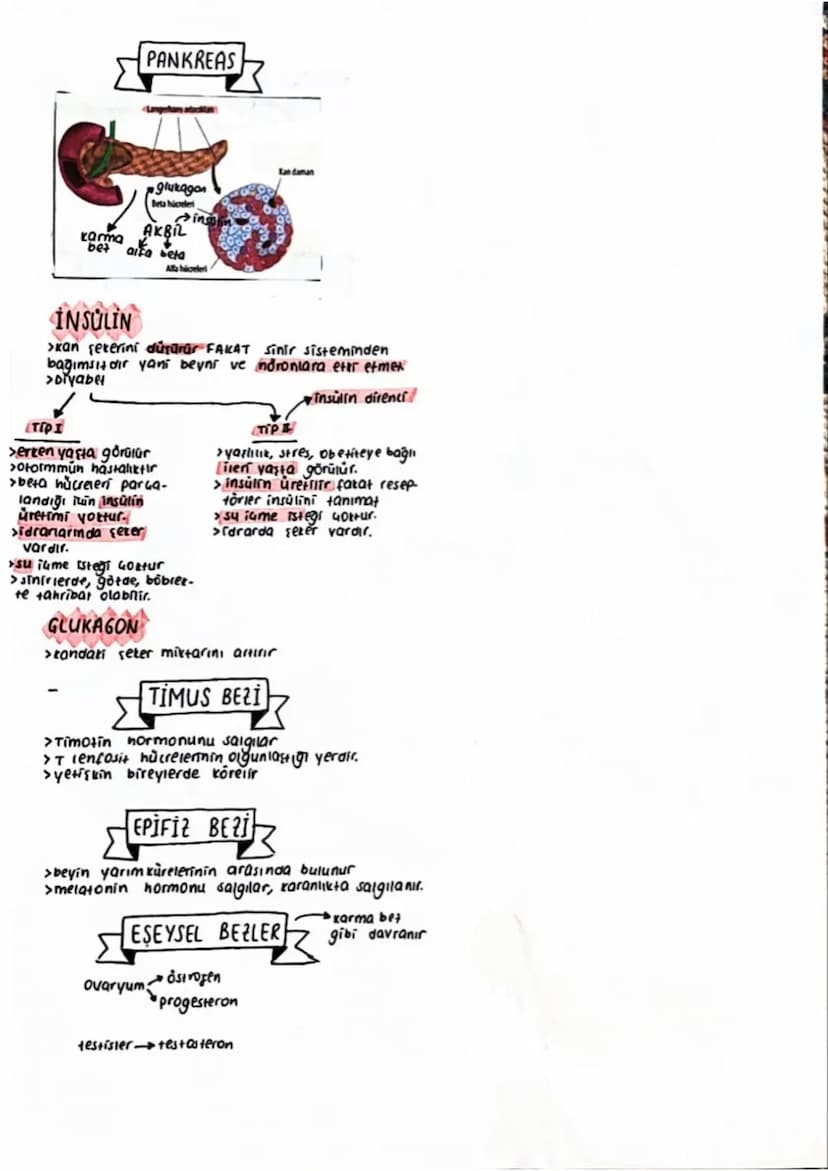 PANKREAS
Langerhans adacıkları
Kan damarı
glukagon
Beta hücreleri
insülin
AKBİL
karma
bez
alfa beta
Alfa hücreleri
İNSÜLİN
>kan şekerini düşürür FAKAT sinir sisteminden
bağımsızdır yani beyni ve nöronlara etki etmez
>Diyabet
insülin direnci
TİP I
>erken yaşta görülür
>otoimmün hastalıktır
>beta hücreleri parça-
landığı için insülin
üretimi yoktur.
>idrarlarında şeker
vardır.
>su içme isteği çoktur
>sinirlerde, gözde, böbrek-
te tahribat olabilir.
TİP II
>yaşlılık, stres, obeziteye bağlı
ileri yaşta görülür.
>insülin üretilir fakat resep
törler insülini tanımaz
>su içme isteği çoktur.
>idrarda şeker vardır.
GLUKAGON
>kandaki şeker miktarını artırır
-
TİMUS BEZİ
>Timozin hormonunu salgılar
>T lenfosit hücrelerinin olgunlaştığı yerdir.
>yetişkin bireylerde körelir
EPİFİZ BEZİ
>beyin yarımkürelerinin arasında bulunur
>melatonin hormonu salgılar, karanlıkta salgılanır.
EŞEYSEL BEZLER
karma bez
gibi davranır
ovaryum
östrojen
progesteron
testisler → testosteron